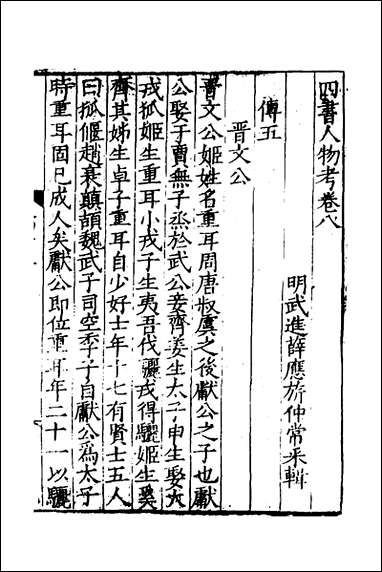 四書人物考卷八
明武進薛應旂仲常采輯
傳五
晉文公
晉文公姬姓名重耳周唐叔虞之後獻公之子也獻
公娶于賈無子烝於武公妾齊姜生太子申生娶大
戎狐姬生重耳小戎子生夷吾伐驪戎得驪姬生奚
齊其娣生卓子重耳自少好士年十七有賢士五人
曰狐偃趙衰顛頡魏武子司空季子自獻公爲太子
時重耳固已成人矣獻公即位重耳年二十一以驪